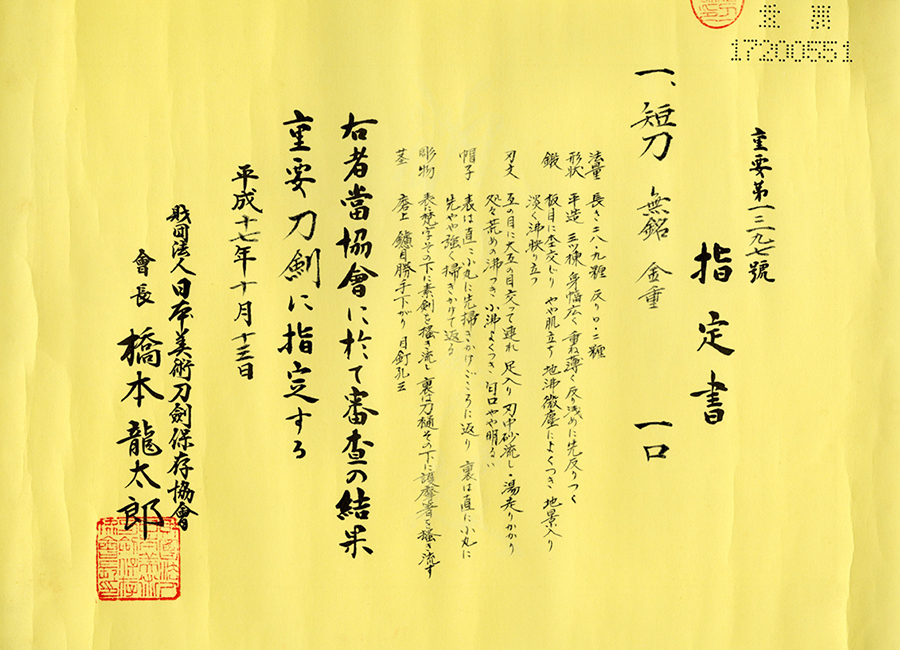 17200551
重要第一三二九七號
指定書
一、短刀 無銘 金重 一口
法量 長さ二八・九糎 反り〇・二糎
形状 平造 三ツ棟 身幅広く 重ね薄く 反り浅めに先反りつく
鍛 板目に杢交じり やや肌立ち 地沸微塵によくつき 地景入り
淡く沸映り立つ
刃文 互の目に大互の目交って連れ 足入り 刃中砂流し・湯走りかかり
処々荒めの沸つき 小沸よくつき 匂口やや明るい
帽子 表は直に小丸に先掃きかけごころに返り 裏は直に小丸に
先やや強く掃きかけて返る
彫物 表に梵字その下に素剣を掻き流し 裏は刀樋その下に護摩箸を掻き流す
茎 磨上 鑢目勝手下がり 目釘孔三
右者當協會に於て審査の結果
重要刀剣に指定する
平成十七年十月十三日
財団法人日本美術刀劍保存協會
會長 橋本龍太郎